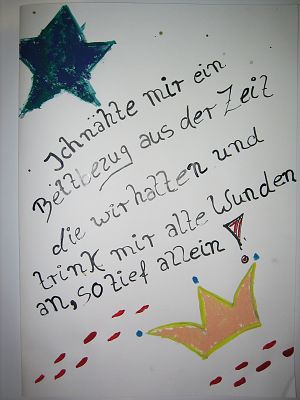 Ich nähte mir ein
Bettbezug aus der Zeit
die wir hatten und
trink mir alte Wunden
an, so tief allein!